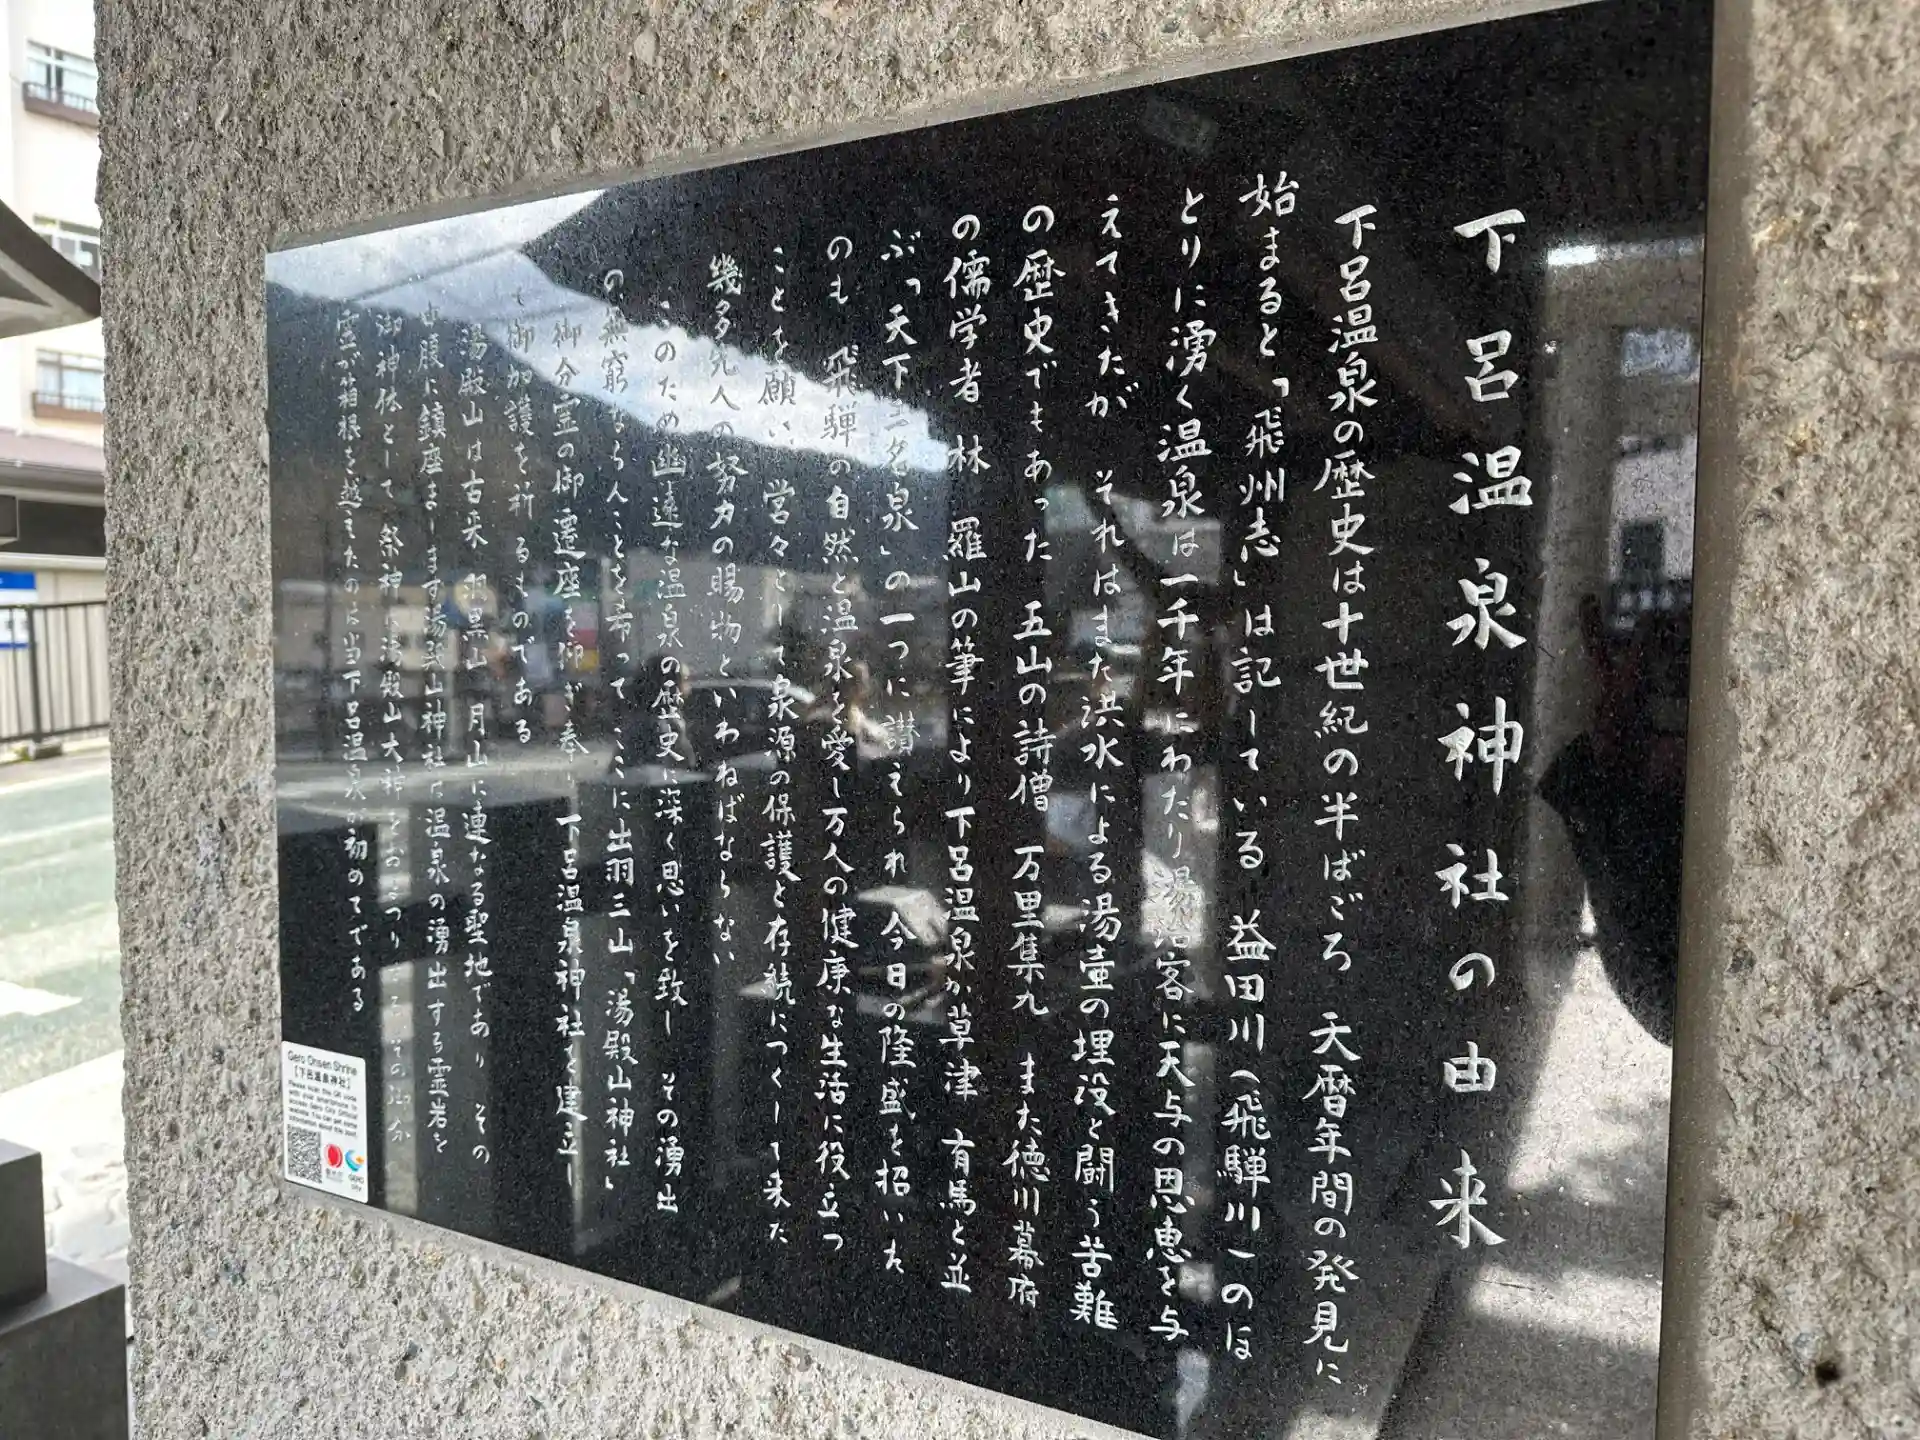 下呂温泉神社の由来
下呂温泉の歴史は十世紀の半ばごろ 天暦年間の発見に
始まると「飛州志」は記している 益田川(飛騨川)のほ
とりに湧く温泉は一千年にわたり湯治客に天与の恩恵を与
えてきたが それはまた洪水による湯壷の埋没と闘う苦難
の歴史でもあった 五山の詩僧 万里集九 また徳川幕府
の儒学者 林 羅山の筆により下呂温泉が草津 有馬と並
ぶ「天下三名泉」の一つに讃えられ 今日の隆盛を招いた
のも 飛騨の自然と温泉を愛し万人の健康な生活に役立つ
ことを願い 営々として泉源の保護と存続につくして来た
幾多先人の努力の賜物といわねばならない
このため幽遠な温泉の歴史に深く思いを致し その湧出
の無窮ならんことを希って ここに出羽三山「湯殿山神社」
の御分霊の御遷座を仰ぎ奉り 下呂温泉神社を建立し
御加護を祈るものである
湯殿山は古来 羽黒山 月山に連なる聖地であり その
中腹に鎮座まします湯殿山神社は温泉の湧出する霊岩を
御神体として 祭神に湯殿山大神をおまつりする その御分
霊が箱根を越えたのは当下呂温泉が初めてである
Gero Onsen Shrine
【下呂温泉神社】
Please scan the QR code
with your smartphone to
access Gero City Official
website. You can get some
information about this spot.
GERO